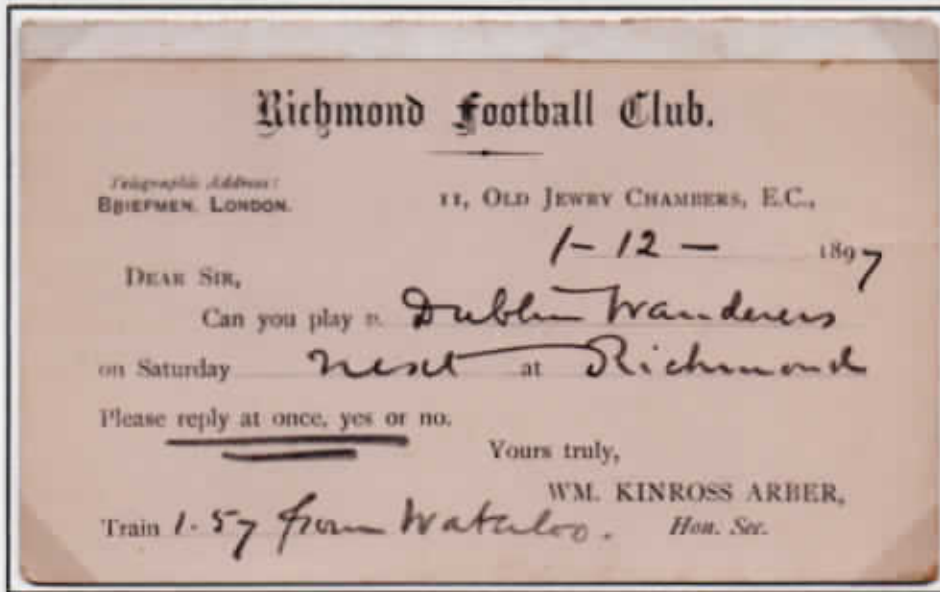 Richmond Football Club.
Telegraphic Address:
BRIEFMEN, LONDON.
11, OLD JEWRY CHAMBERS, E.C.,
1-12- 1897
DEAR SIR,
Can you play v. Dublin Wanderers
on Saturday next at Richmond
Please reply at once, yes or no.
Yours truly,
WM. KINROSS ARBER,
Hon. Sec.
Train 1.57 from Waterloo.